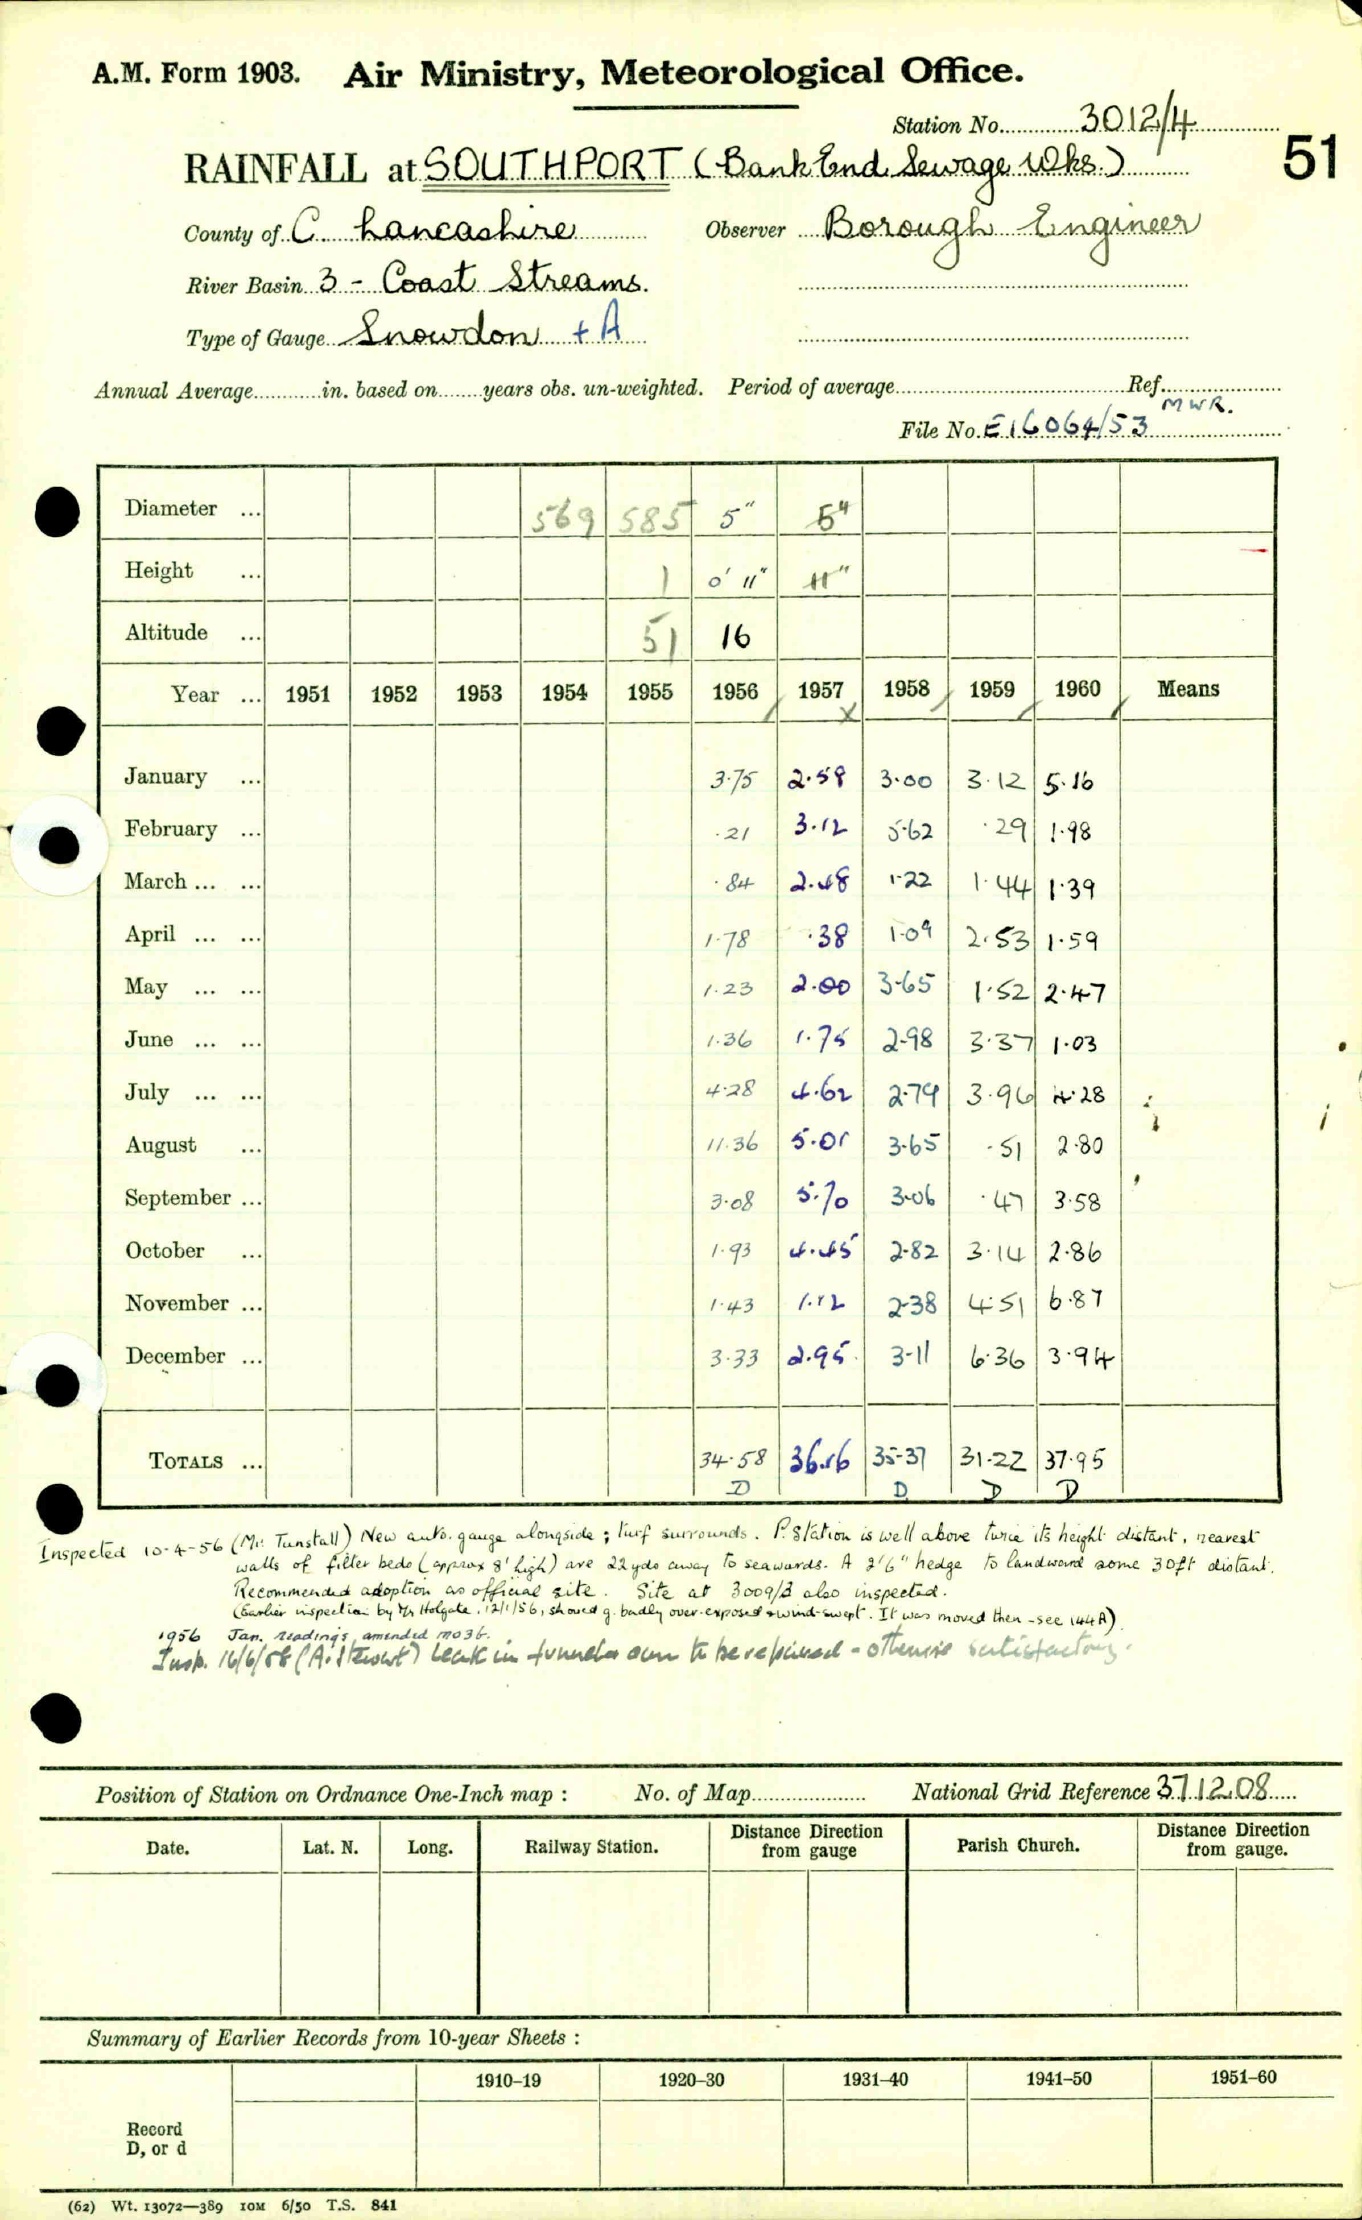 A.M. Form 1903. Air Ministry, Meteorological Office.
Station No. 3012/4
51
RAINFALL at SOUTHPORT (Bank End Sewage Wks.)
County of C. Lancashire Observer Borough Engineer
River Basin 3 - Coast Streams.
Type of Gauge Snowdon + A
Annual Average............in. based on........years obs. un-weighted. Period of average.................... Ref.............
MWR.
File No. E16064/53
Diameter ... 569 585 5" 5"
Height ... 1 0' 11" 11"
Altitude ... 51 16
Year ... 1951 1952 1953 1954 1955 1956 1957 1958 1959 1960 Means
January ... 3·75 2·58 3·00 3·12 5·16
February ... ·21 3·12 5·62 ·29 1·98
March ... ... ·84 2·48 1·22 1·44 1·39
April ... ... 1·78 ·38 1·09 2·53 1·59
May ... ... 1·23 2·00 3·65 1·52 2·47
June ... ... 1·36 1·75 2·98 3·37 1·03
July ... ... 4·28 4·62 2·79 3·96 4·28
August ... 11·36 5·01 3·65 ·51 2·80
September ... 3·08 5·70 3·06 ·47 3·58
October ... 1·93 4·45 2·82 3·14 2·86
November ... 1·43 1·12 2·38 4·51 6·87
December ... 3·33 2·95 3·11 6·36 3·94
TOTALS ... 34·58 36·16 35·37 31·22 37·95
D D D D
Inspected 10-4-56 (Mr. Tunstall) New auto. gauge alongside; turf surrounds. P. Station is well above twice its height distant, nearest
walls of filter beds (approx 8' high) are 22 yds away to seawards. A 2'6" hedge to landward some 30ft distant.
Recommended adoption as official site. Site at 3009/3 also inspected.
(Earlier inspection by Mr Holgate, 12/1/56, showed g. badly over-exposed & wind-swept. It was moved then - see 144A)
1956 Jan. readings amended MO3b.
Insp. 16/6/58 (A. Stewart) Leak in funnel to be repaired - otherwise satisfactory.
Position of Station on Ordnance One-Inch map : No. of Map.................... National Grid Reference 37.12.08
Date. Lat. N. Long. Railway Station. Distance from Direction gauge Parish Church. Distance from Direction gauge.
Summary of Earlier Records from 10-year Sheets :
1910–19 1920–30 1931–40 1941–50 1951–60
Record
D, or d
(62) Wt. 13072—389 10M 6/50 T.S. 841